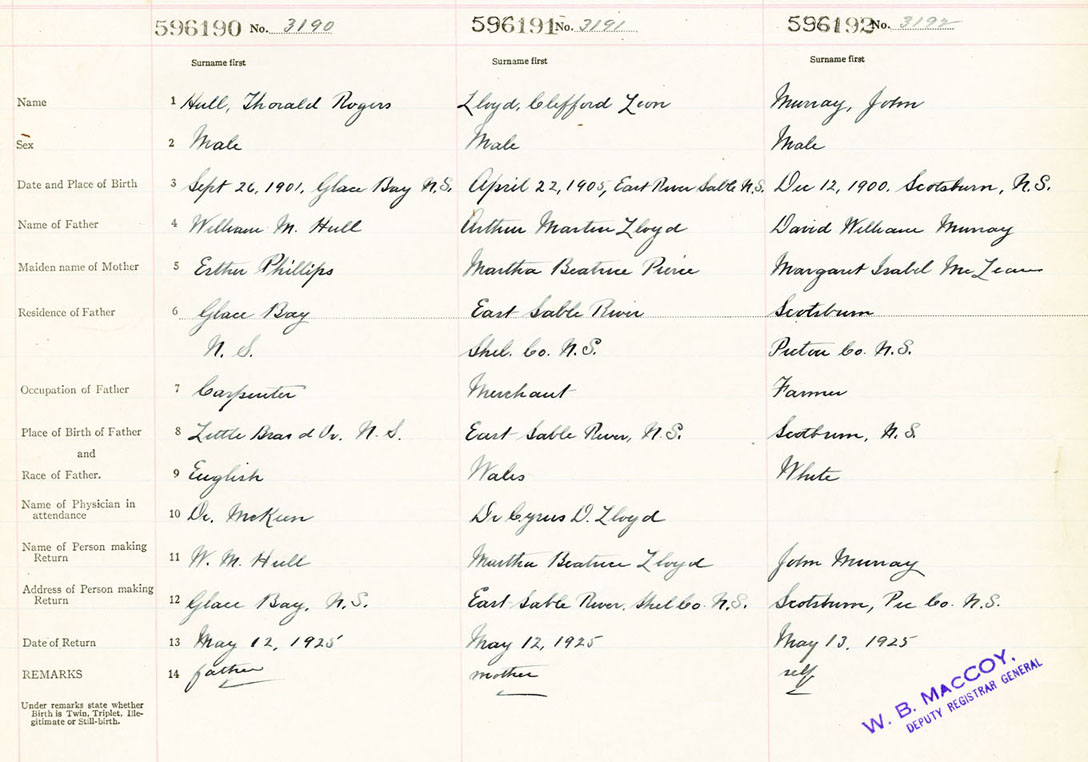 596190 No. 3190 596191 No. 3191 596192 No. 3192
Surname first Surname first Surname first
Name 1 Hull, Thorald Rogers Lloyd, Clifford Leon Murray, John
Sex 2 Male Male Male
Date and Place of Birth 3 Sept 26, 1901, Glace Bay N.S. April 22, 1905, East River Sable N.S. Dec 12, 1900. Scotsburn, N.S.
Name of Father 4 William M. Hull Arthur Martin Lloyd David William Murray
Maiden name of Mother 5 Esther Phillips Martha Beatrice Pierce Margaret Isabel McLean
Residence of Father 6 Glace Bay East Sable River Scotsburn
N. S. Shel. Co. N.S. Pictou Co. N.S.
Occupation of Father 7 Carpenter Merchant Farmer
Place of Birth of Father 8 Little Bras d Or. N. S. East Sable River, N.S. Scotburn, N.S.
and
Race of Father. 9 English Wales White
Name of Physician in
attendance 10 Dr. McKeen Dr Cyrus D. Lloyd
Name of Person making
Return 11 W. M. Hull Martha Beatrice Lloyd John Murray
Address of Person making
Return 12 Glace Bay, N.S. East Sable River. Shel Co. N.S. Scotsburn, Pic Co. N.S.
Date of Return 13 May 12, 1925 May 12, 1925 May 13, 1925
REMARKS 14 father mother self
Under remarks state whether
Birth is Twin, Triplet, Ille-
gitimate or Still-birth.
W. B. MacCOY.
DEPUTY REGISTRAR GENERAL